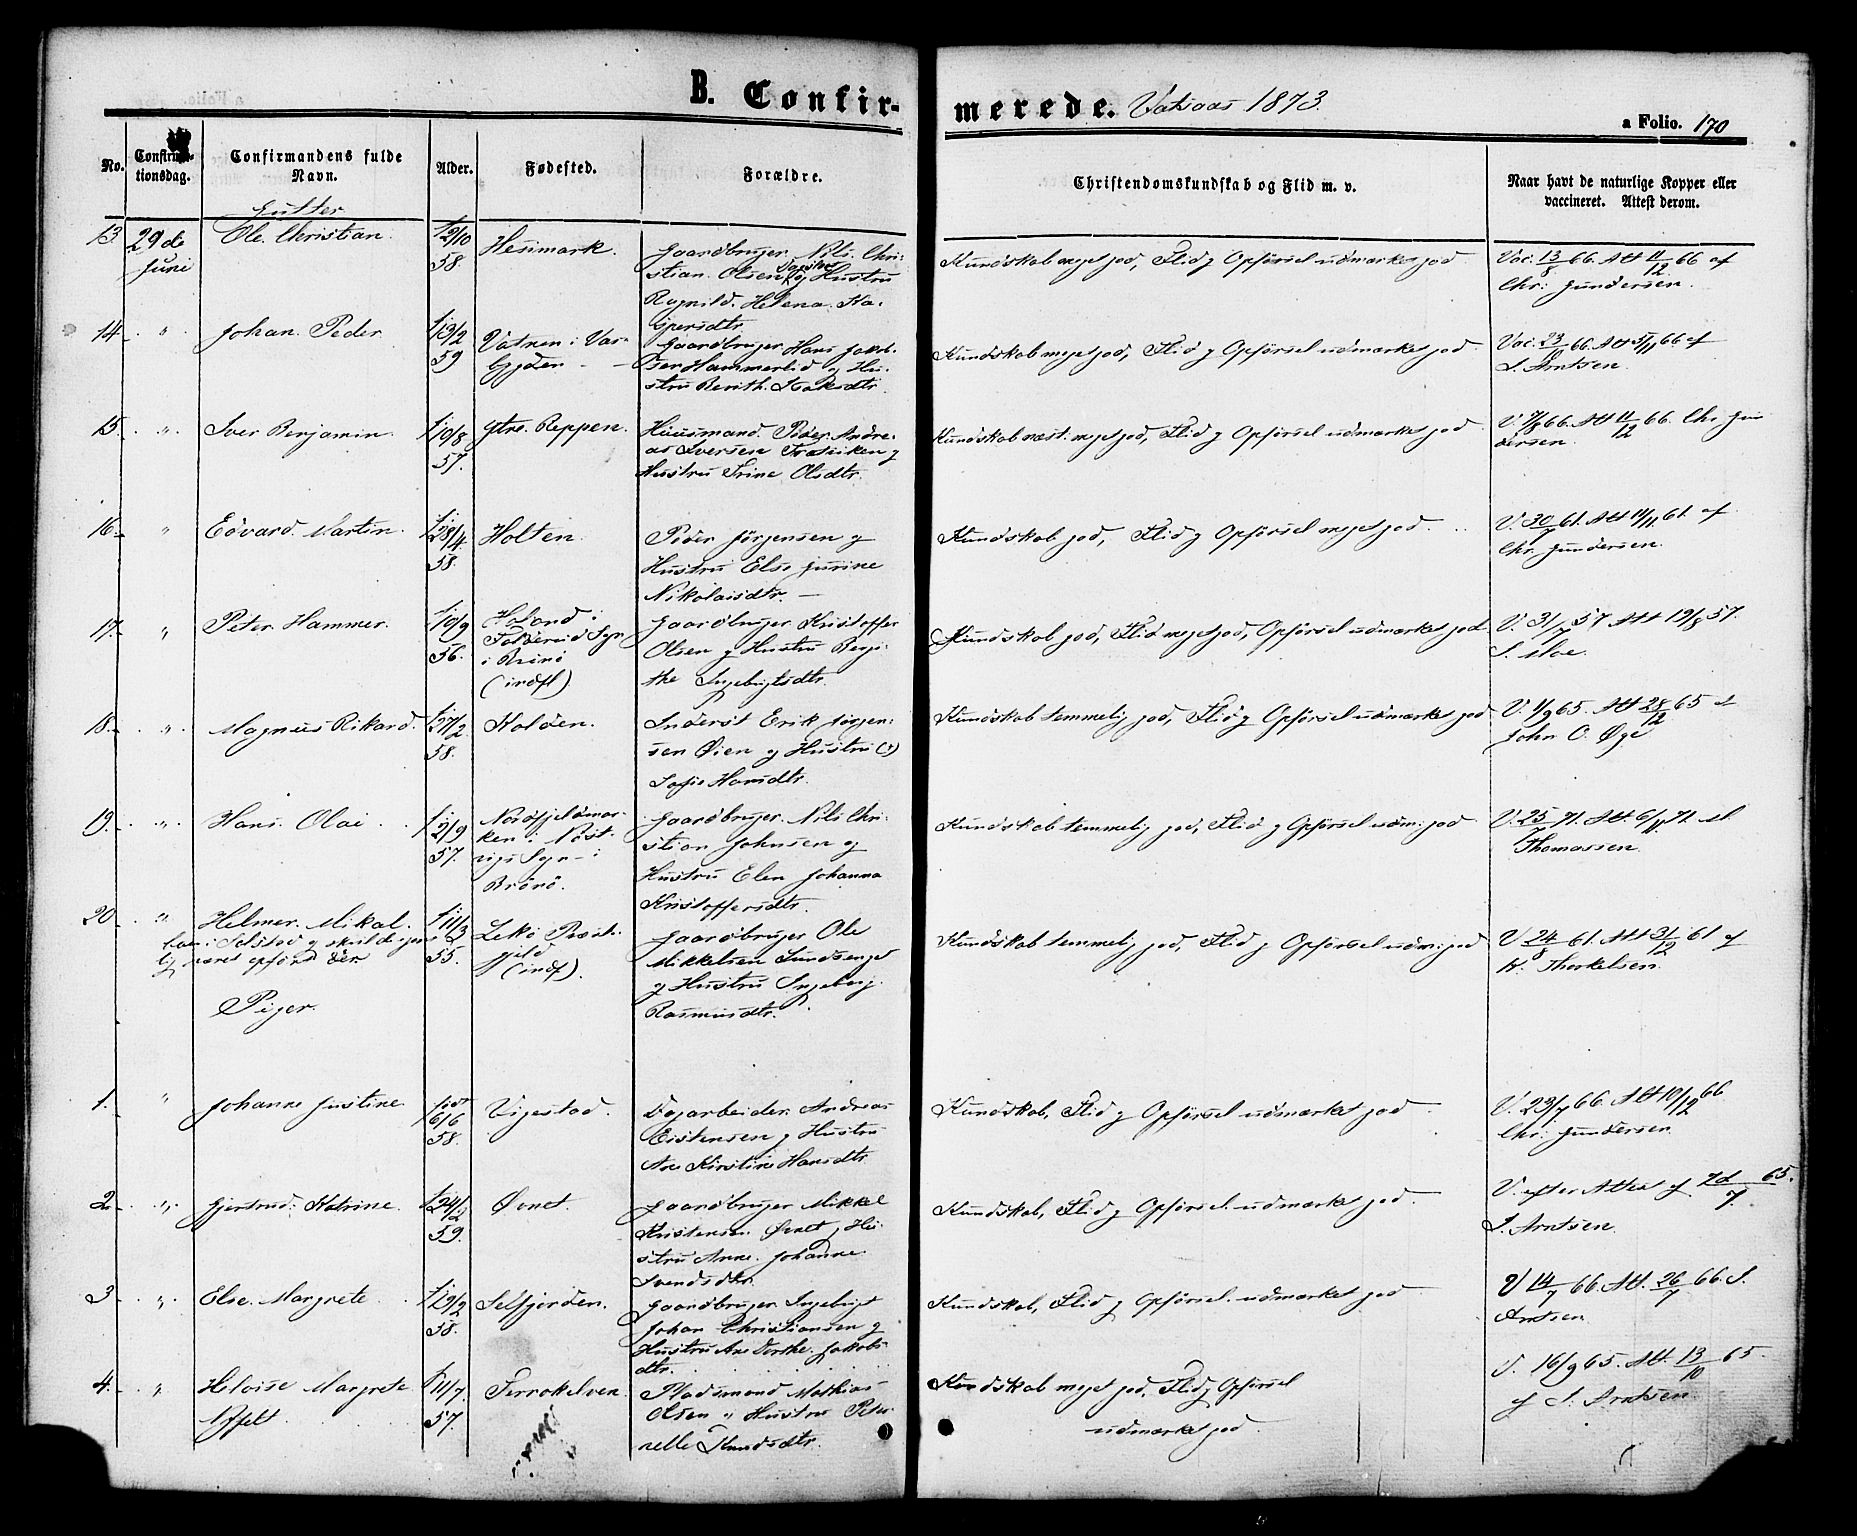 B. Confir-
merede. 1873.
a Folio. 170
No.
Confirma-
tionsdag.
Confirmandens fulde
Navn.
Alder.
Fødested.
Forældre.
Christendomskundskab og Flid m. v.
Naar havt de naturlige Kopper eller
vaccineret. Attest derom.
Gutter
13 29de Ole Christian 12/10 Heimark. Gaardbruger Nils Chri-
Juni 58. stian Olsen og Hustru
Ragnild Helena Ka-
spersdtr.
Kundskab meget god, Flid og Opførsel udmærket god
Vac. 13/8 66. Att 11/12 66 af
Chr. Gundersen.
14 " Johan Peder 13/2 Vatnen i Var-
59 Gaardbruger Hans Jakob-
sen Hammerlid og Hu-
stru Berith Isaksdtr.
Kundskab meget god, Flid og Opførsel udmærket god
Vac. 23/8 66. Att 5/11 66 af
S. Arntsen.
15. " Iver Benjamin 10/8 Ytre Reppen. Huusmand Peder Andre-
57. as Iversen og
Hustru Trine Olsdtr.
Kundskab næst meget god, Flid og Opførsel udmærket god
V. 7/8 66. Att 11/12 66. Chr. Gun
dersen.
16. " Edvard Martin. 28/4 Holten. Peder Jørgensen og
58. Hustru Else Jurine
Nikolaisdtr. —
Kundskab god, Flid og Opførsel meget god
V. 30/7 61. Att 14/11 61. af
Chr. Gundersen.
17. " Peter Hammer. 10/9 i Gaardbruger Kristoffer
56. Foldereid Sgn Olsen og Hustru Beri-
i Brønø the Ingebrigtsdtr.
(indfl)
Kundskab god, Flid meget god, Opførsel udmærket god
V. 31/7 57 Att 19/8 57.
S. Moe.
18. " Magnus Rikard. 27/2 Kolden. Inderst Erik Jørgen-
58. sen Øien og Hustru (†)
Sofie Hansdtr.
Kundskab temmelig god, Flid og Opførsel udmærket god
V. 1/9 65. Att 28/12 65 af
John O. Øye
19. " Hans Olai 2/9 Nordfjeldmar- Gaardbruger Nils Chri-
57. ken i stian Johnsen og
Sgn i Hustru Elen Johanna
Brønø. Kristoffersdtr.
Kundskab temmelig god, Flid og Opførsel udm: god
V. 25 71. Att. 6/11 71 af
Thomassen
20. " Helmer Mikal 11/3 Lekø Præste- Gaardbruger Ole
55. gjeld Mikkelsen Sundsenget
(indf). og Hustru Ingeborg
Rasmusdtr.
været opført der
Kundskab temmelig god, Flid og Opførsel udm: god
V 24/8 61. Att 31/12 61 af
K. Thorkelsen.
Piger.
1. " Johanne Justine 6/6 Vigestad. Dagarbeider Andreas
58. Eistensen og Hustru
Ane Kirstine Hansdtr
Kundskab, Flid og Opførsel udmærket god
V. 23/7 66. Att 10/12 66
Chr. Gundersen
2. " Gjertrud Katrine. 24/2 Øvnet. Gaardbruger Mikkel
59. Kristensen Øvnet og Hu-
stru Anne Johanne
Svendsdtr.
Kundskab, Flid og Opførsel udmærket god
V. efter Attest af 65.
S. Arntsen.
3 " Else Margrete 19/2 Selfjorden. Gaardbruger Ingebrigt
58. Johan Christiansen og
Hustru Ane Dorthe Jakobs
dtr.
Kundskab, Flid og Opførsel udmærket god
V 14/7 66. Att. 26/7 66. S.
Arntsen
4. " Heloise Margrete 11/7 Terrakelven. Pladsmand Mathias
57. Olsen " Hustru Peter-
nelle Knudsdtr.
Kundskab meget god, Flid og Opførsel
udmærket god.
V. 16/9 65. Att. 13/10 65.
af S. Arntsen.